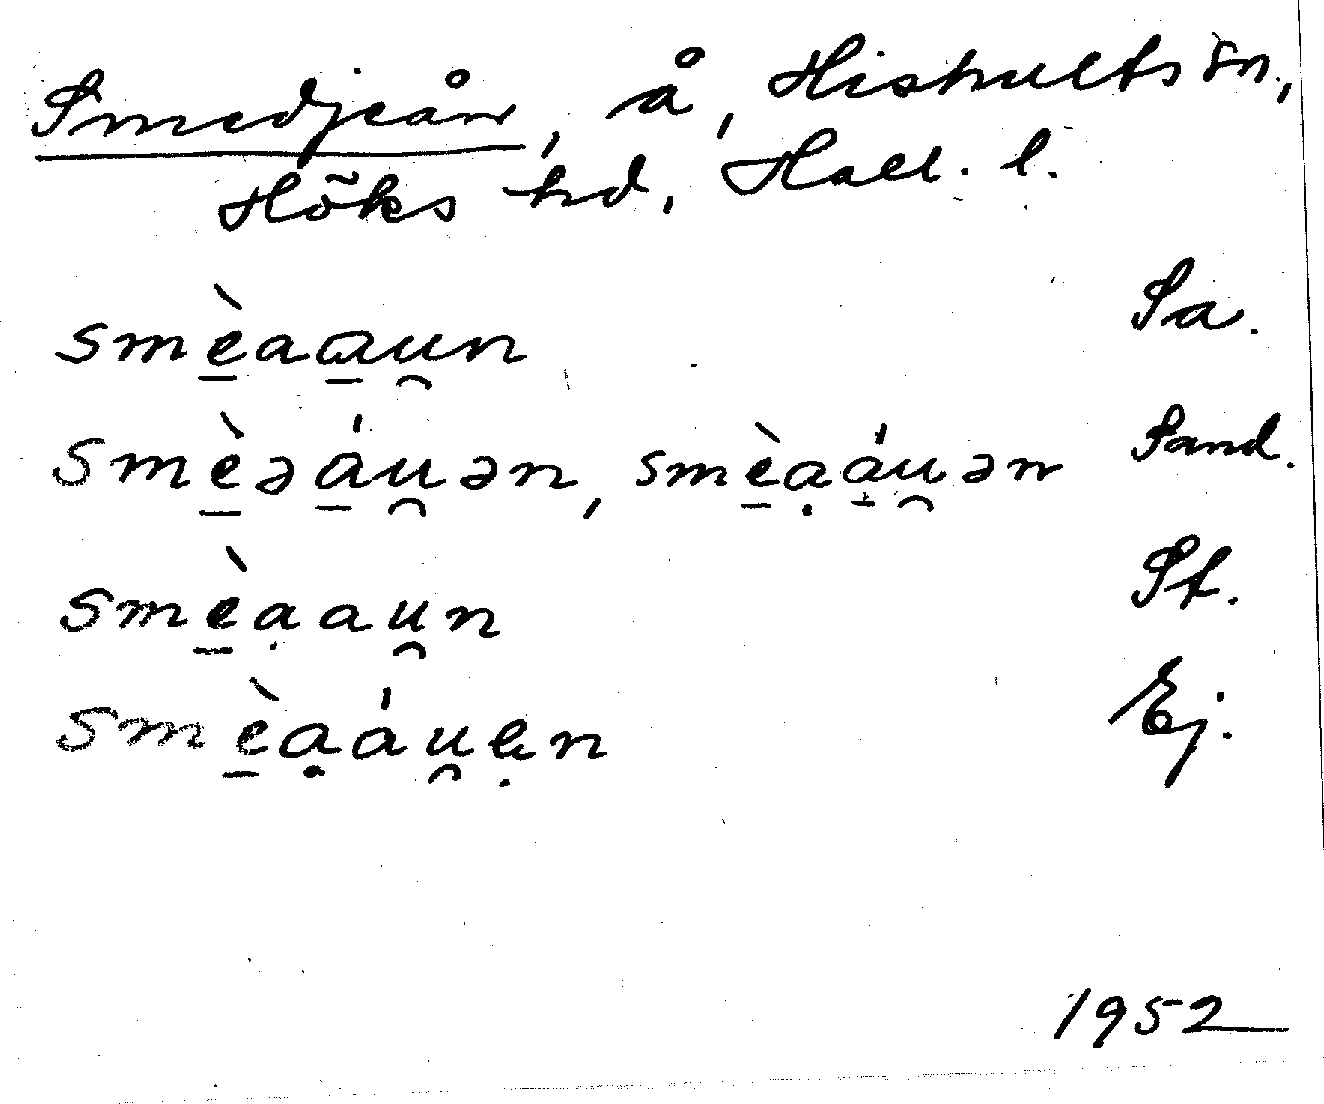 Smedjeån, å, Hishults sn,
Höks hd, Hall. l.
smè̱aa̱u̯n Sa.
smè̱əá̱u̯ən, smè̱ạá̱u̯ən Sand.
smè̱ạau̯n St.
smè̱ạáu̯ẹn Ej.
1952